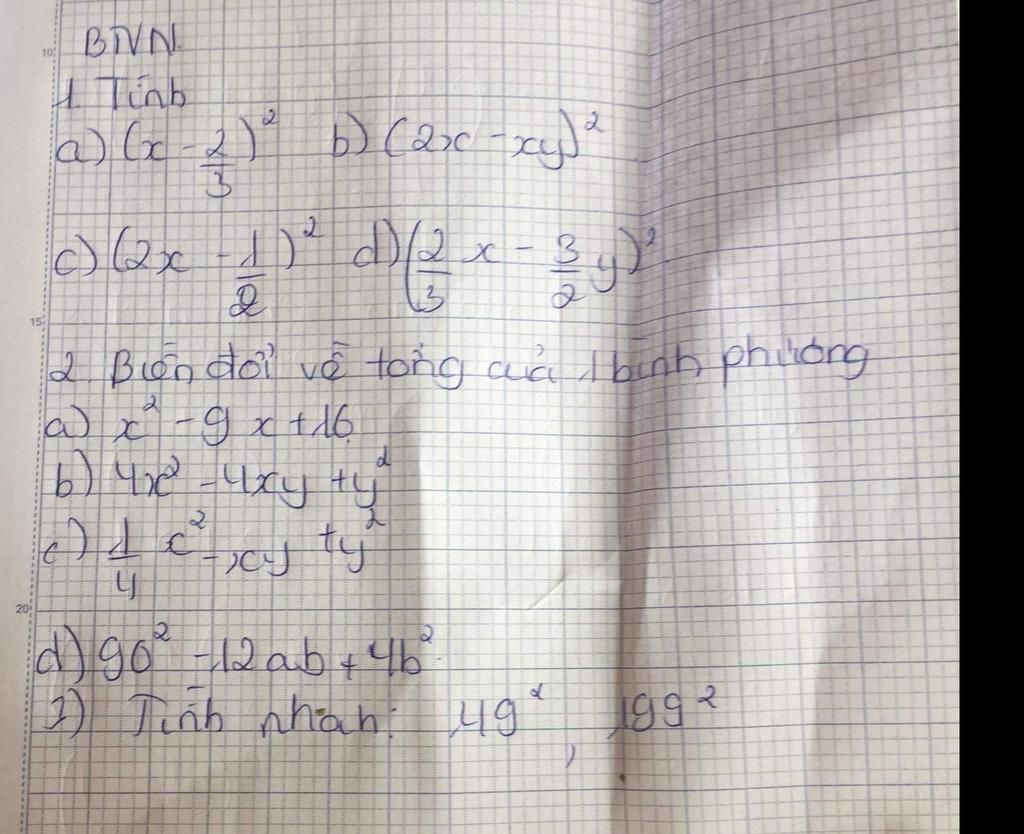 10
BTVN.
1. Tính
a) (x - 2/3)² b) (2x - xy)²
c) (2x - 1/2)² d) (2/3 x - 3/2 y)²
15
2. Biến đổi về tổng của 1 bình phương
a) x² - 9x + 16
b) 4x² - 4xy + y²
c) 1/4 x² - xy + y²
20
d) 9a² - 12ab + 4b²
3) Tính nhanh: 49², 199²